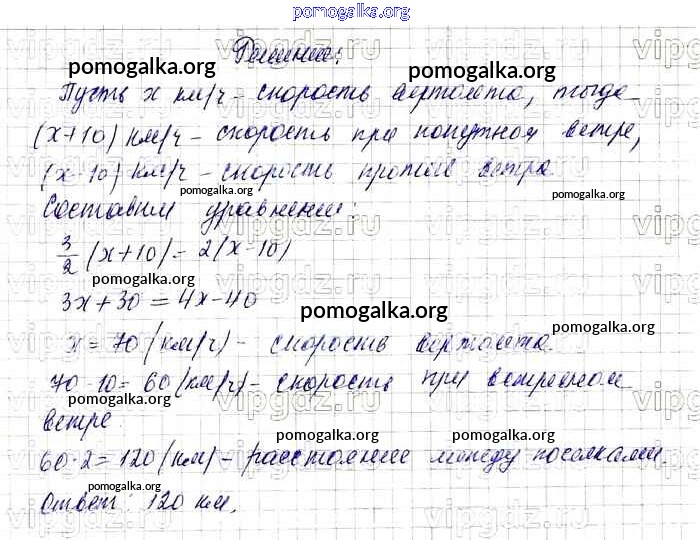 pomogalka.org
Решение:
Пусть x км/ч – скорость вертолета, тогда
(x+10) км/ч – скорость при попутном ветре,
(x-10) км/ч – скорость против ветра
Составим уравнение:
3/2 (x+10) = 2(x-10)
3x+30 = 4x-40
x = 70 (км/ч) – скорость вертолета.
70-10 = 60 (км/ч) – скорость при встречном
ветре
60·2=120 (км) – расстояние между поселками.
Ответ: 120 км.
pomogalka.org
pomogalka.org
pomogalka.org
pomogalka.org
pomogalka.org
pomogalka.org
pomogalka.org
pomogalka.org
pomogalka.org
pomogalka.org
pomogalka.org
pomogalka.org
vipgdz.ru